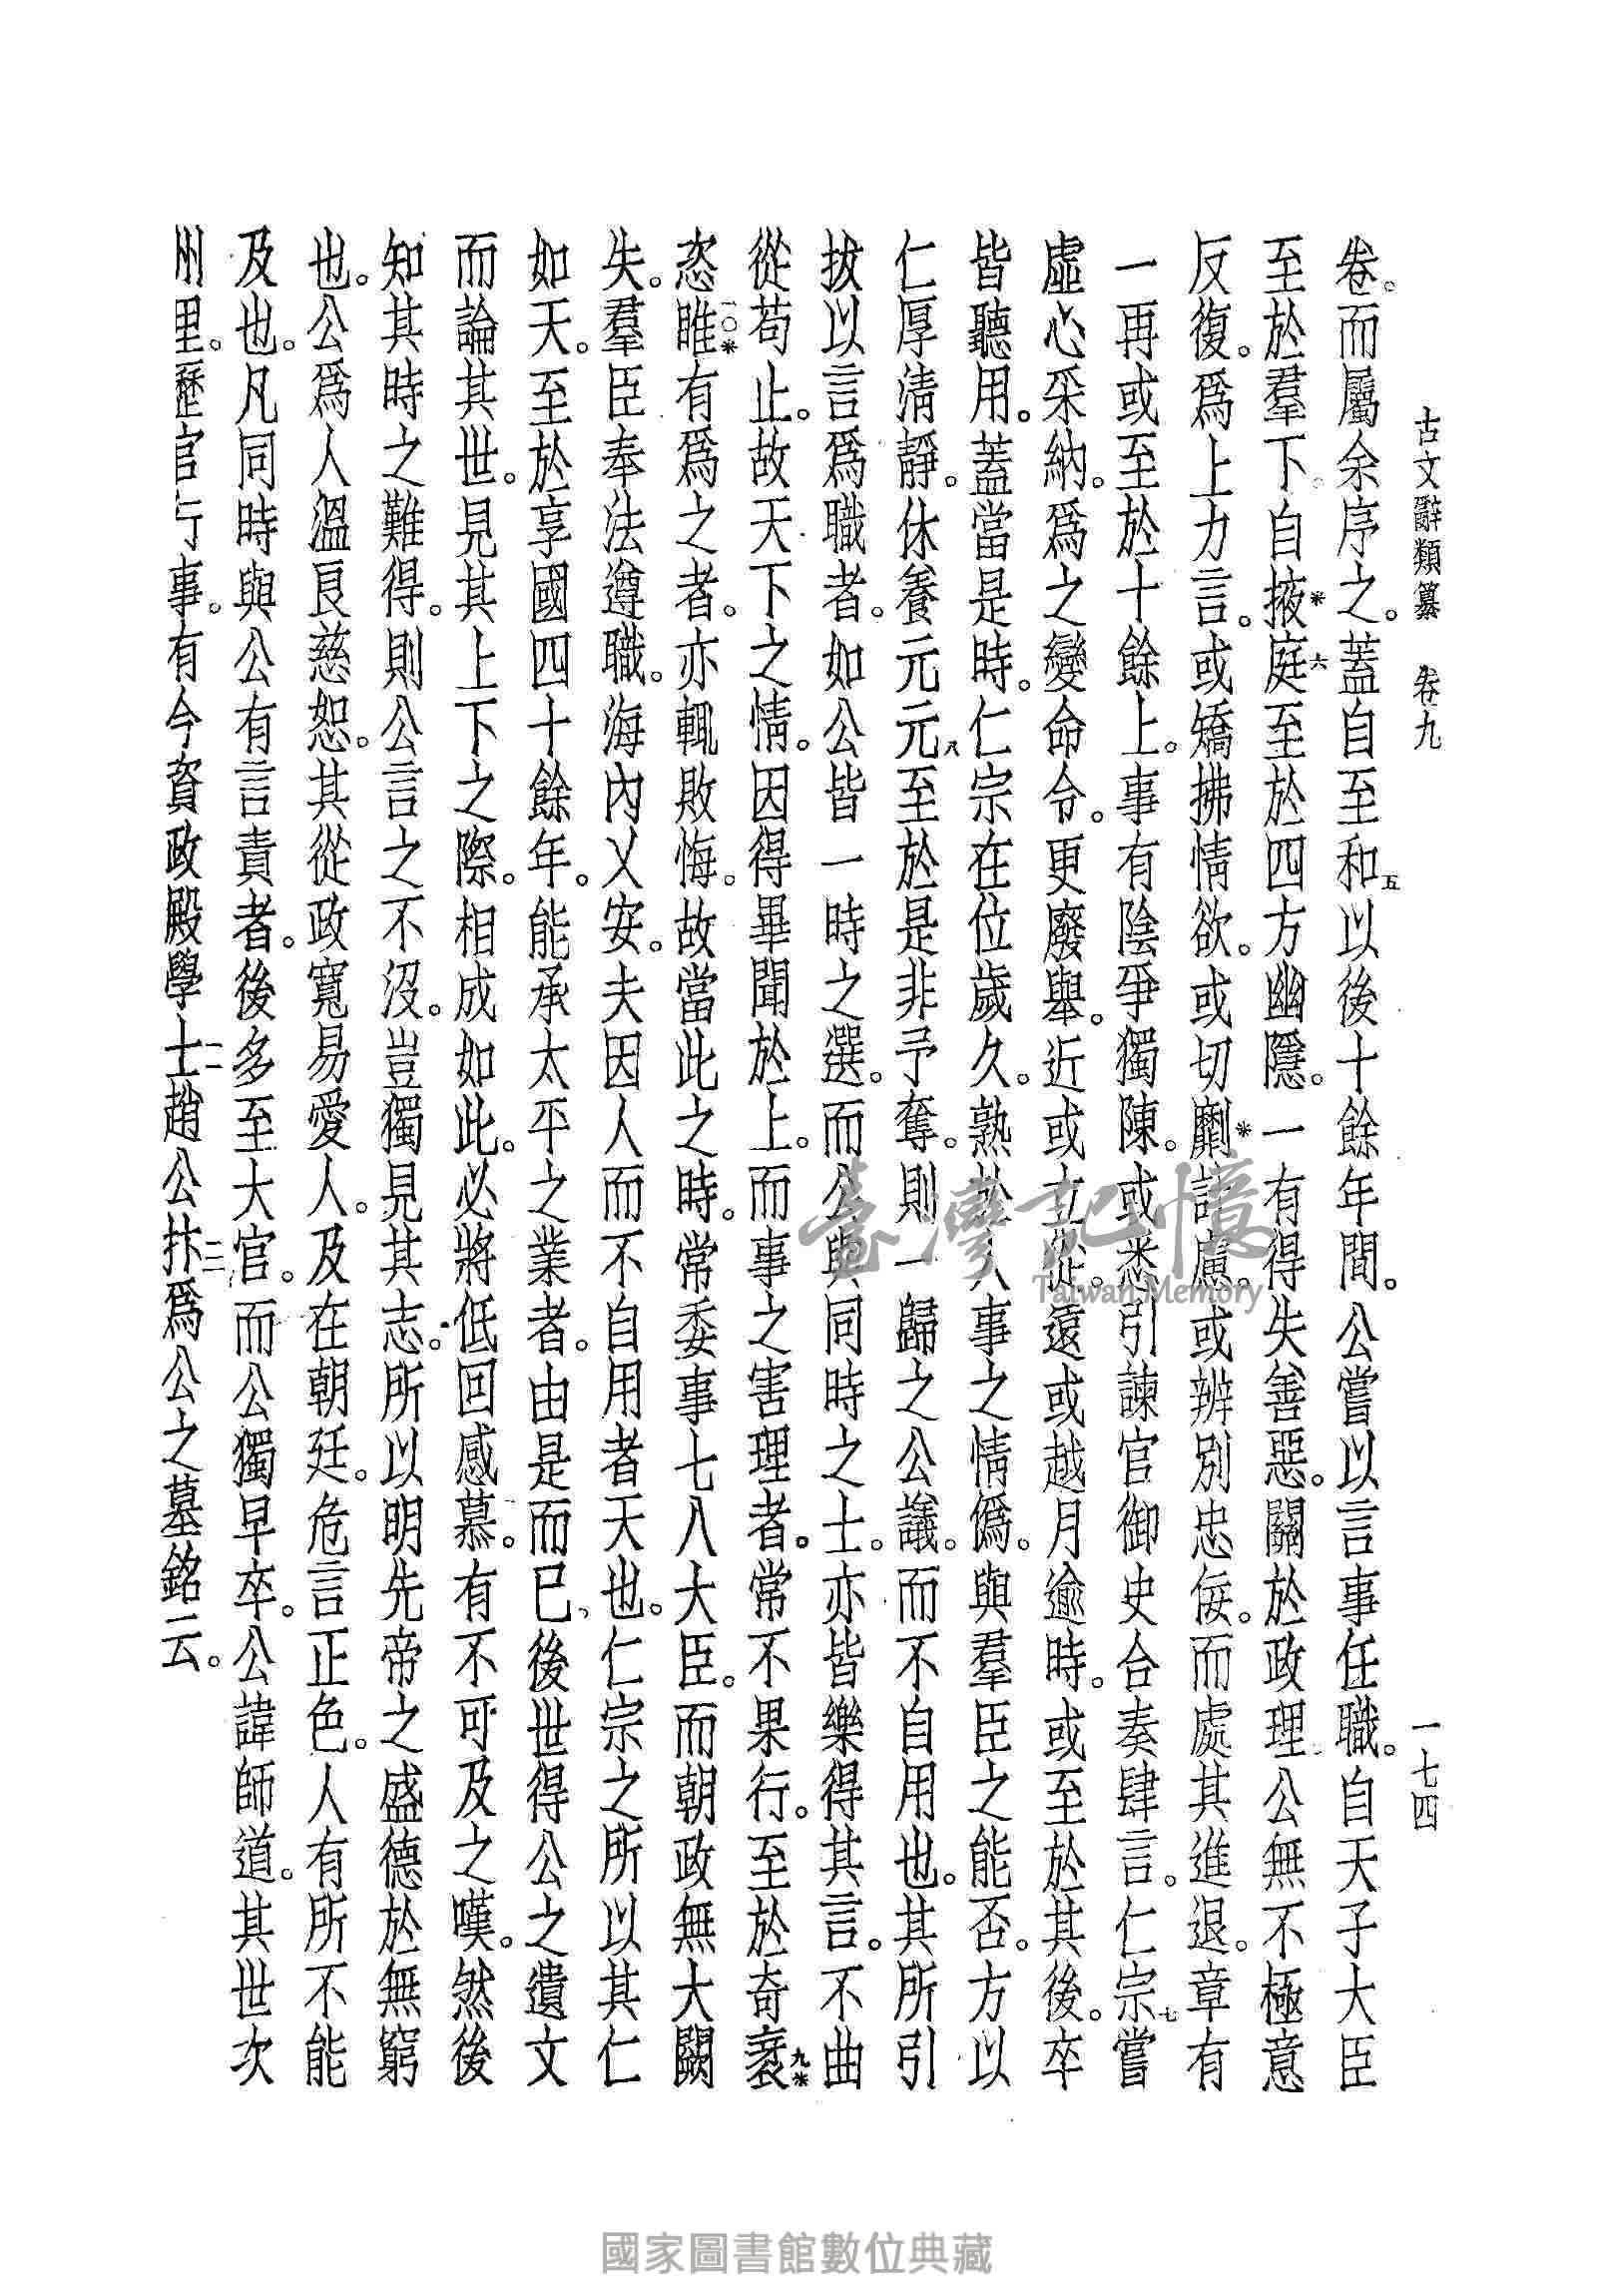 古文辭類纂　卷九　一七四
卷。而屬余序之。蓋自至和五以後十餘年間。公嘗以言事任職。自天子大臣
至於羣下。自掖*庭六至於四方幽隱。一有得失善惡。關於政理。公無不極意
反復。爲上力言。或矯拂情欲。或切劘*計慮。或辨別忠佞。而處其進退。章有
一再或至於十餘上。事有陰爭獨陳。或悉引諫官御史合奏肆言。仁宗七嘗
虛心采納。爲之變命令。更廢舉。近或立從。遠或越月逾時。或至於其後。卒
皆聽用。蓋當是時。仁宗在位歲久。熟於人事之情僞。與羣臣之能否。方以
仁厚清靜。休養元元八至於是非予奪。則一歸之公議。而不自用也。其所引
拔以言爲職者。如公皆一時之選。而公與同時之士。亦皆樂得其言。不曲
從苟止。故天下之情。因得畢聞於上。而事之害理者。常不果行。至於奇衺九*
恣睢一〇*有爲之者。亦輒敗悔。故當此之時。常委事七八大臣。而朝政無大闕
失。羣臣奉法遵職。海內乂安。夫因人而不自用者天也。仁宗之所以其仁
如天。至於享國四十餘年。能承太平之業者。由是而已、後世得公之遺文
而論其世。見其上下之際。相成如此。必將低回感慕。有不可及之嘆。然後
知其時之難得。則公言之不沒。豈獨見其志。所以明先帝之盛德於無窮
也。公爲人溫良慈恕。其從政寬易愛人。及在朝廷。危言正色。人有所不能
及也。凡同時與公有言責者。後多至大官。而公獨早卒。公諱師道。其世次
州里。歷官行事。有今資政殿學士一一趙公抃一二爲公之墓銘云。
臺灣記憶
Taiwan Memory
國家圖書館數位典藏